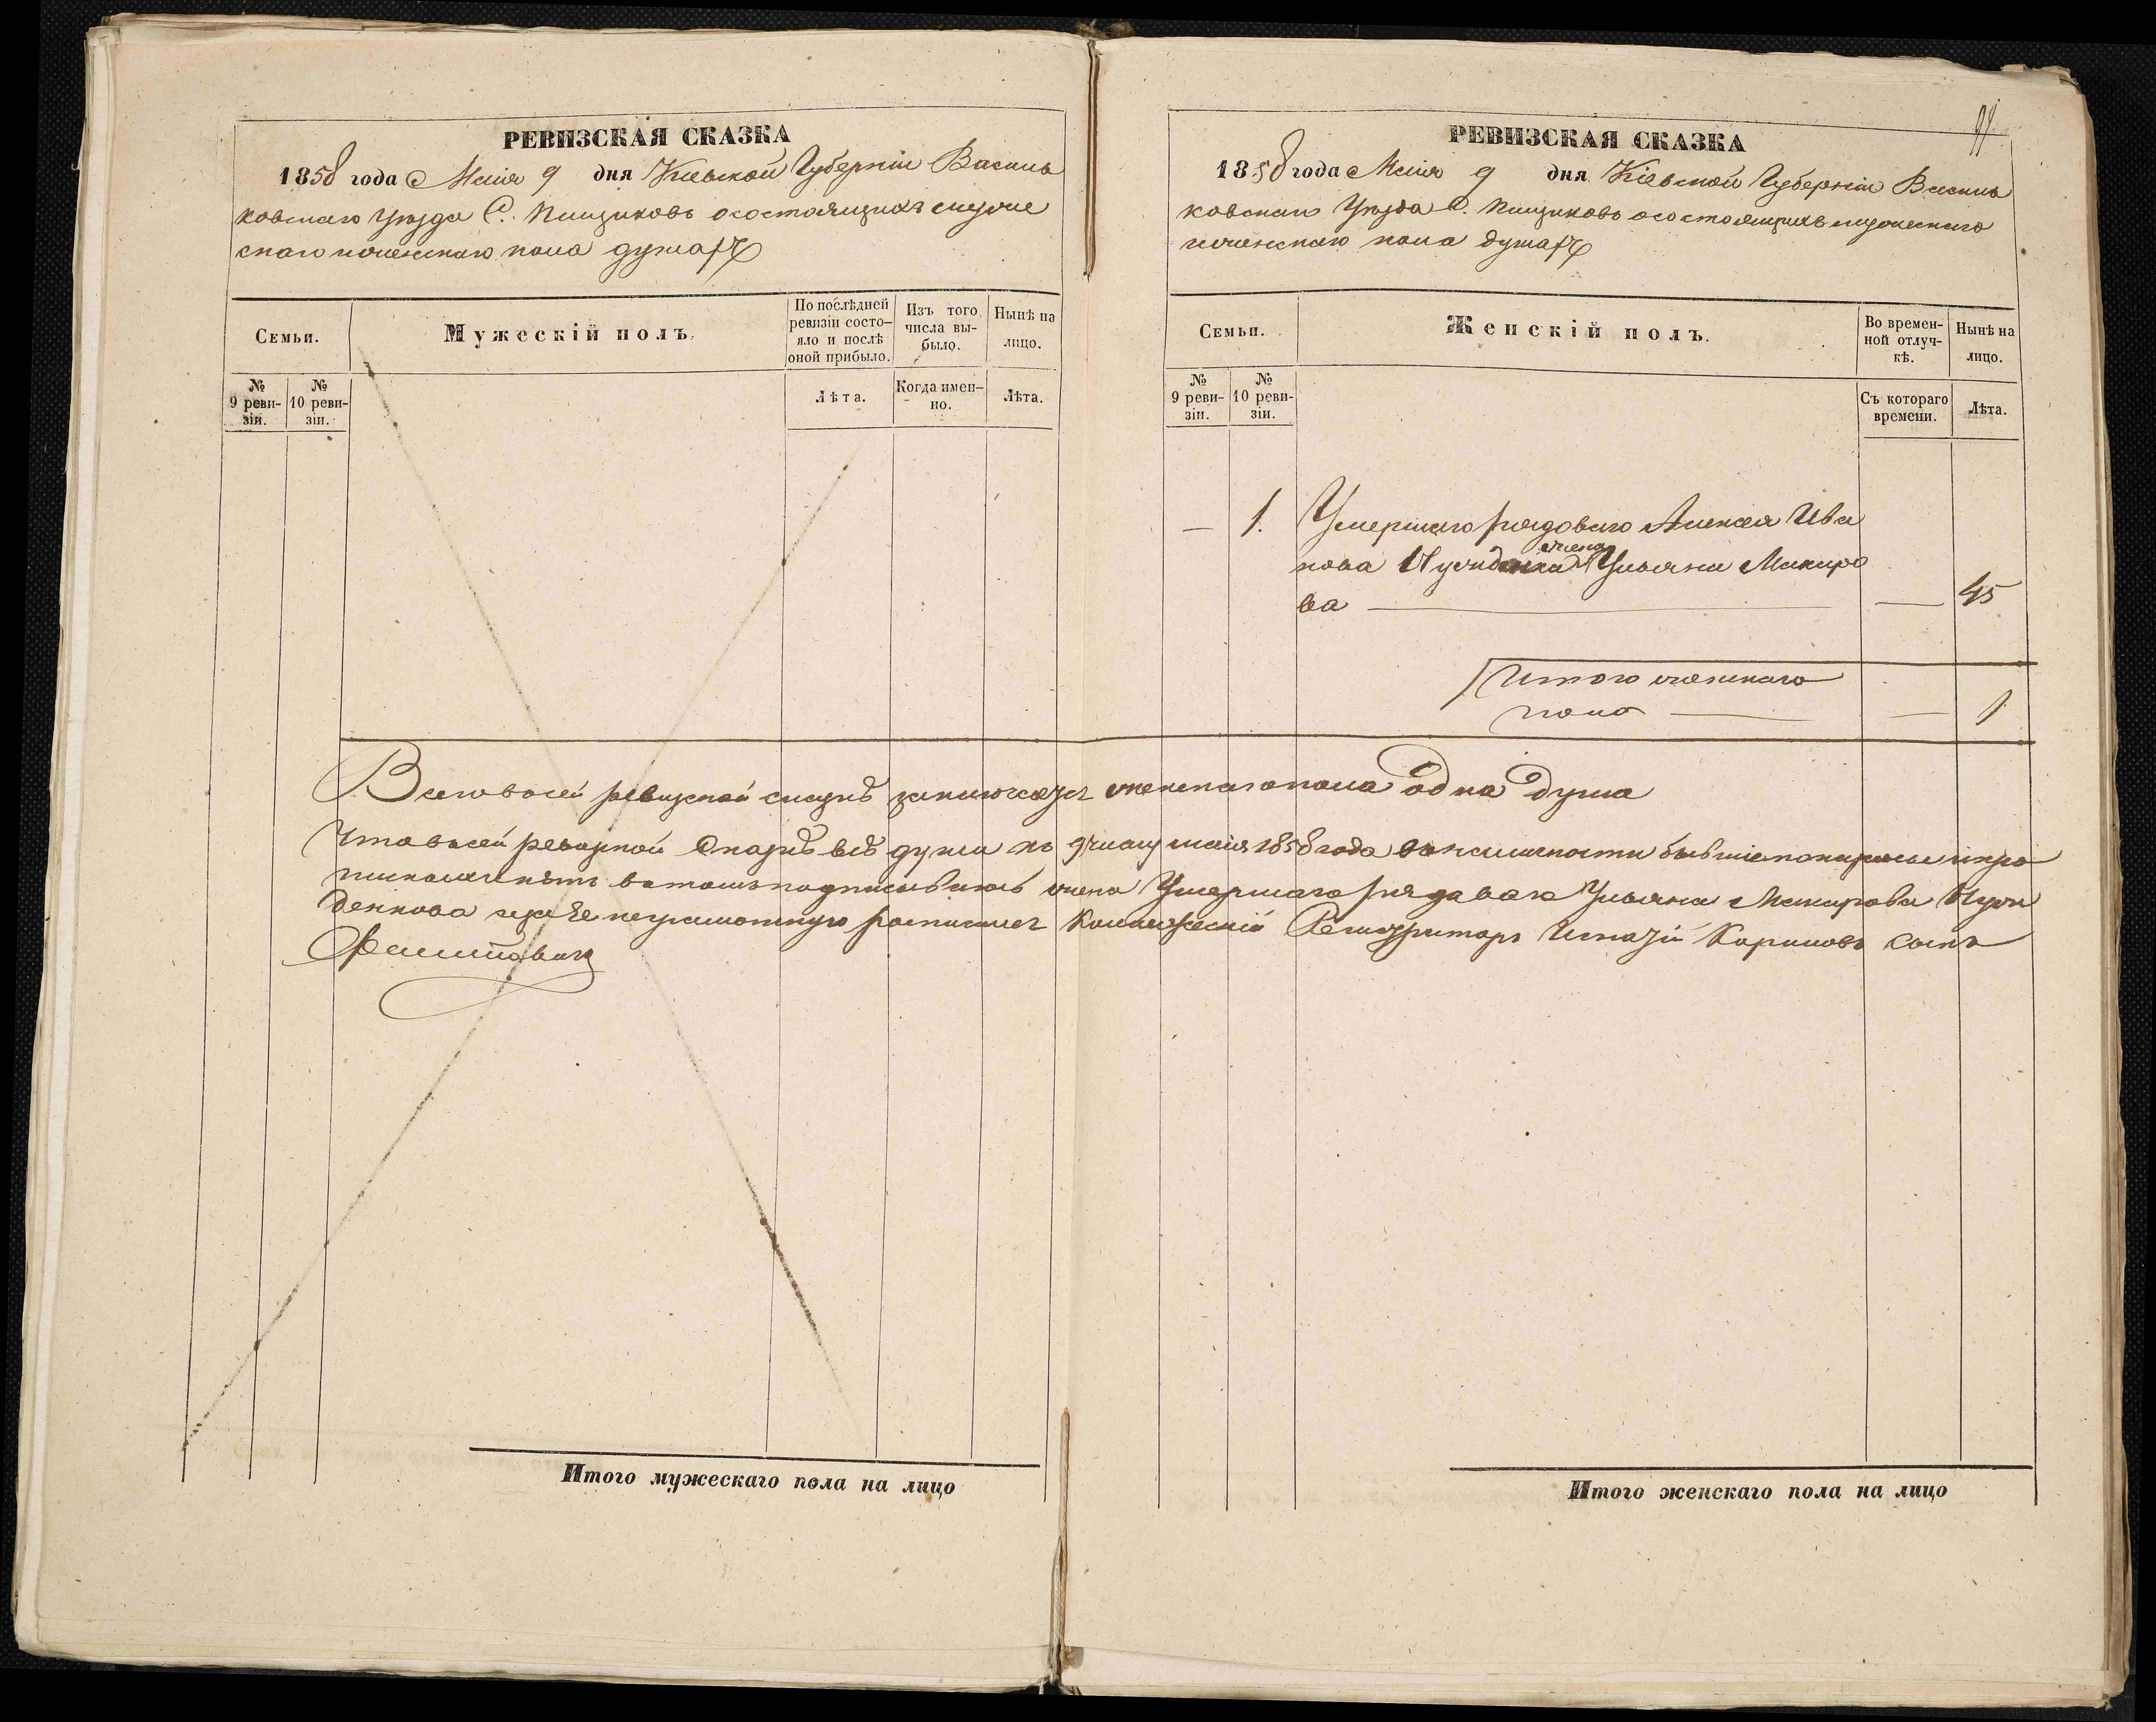 РЕВИЗСКАЯ СКАЗКА
1858 года Маія 9 дня Кіевской Губерніи Василь
ковскаго Уѣзда С. Пищиковъ осостоящихъ мужес
скаго иженскаго пола душахъ
Семьи.
Мужескій полъ.
По послѣдней ревизіи состо-
яло и послѣ
оной прибыло.
Изъ того
числа вы-
было.
Нынѣ на
лицо.
№
9 реви-
зіи.
№
10 реви-
зіи.
Лѣта.
Когда имен-
но.
Лѣта.
РЕВИЗСКАЯ СКАЗКА
1858 года Маія 9 дня Кіевской Губерніи Василь
ковскаго Уѣзда С. Пищиковъ осостоящихъ мужескаго
иженскаго пола душахъ
Семьи.
Женскій полъ.
Во времен-
ной отлуч-
кѣ.
Нынѣ на
лицо.
№
9 реви-
зіи.
№
10 реви-
зіи.
Съ котораго
времени.
Лѣта.
— 1. Умершаго рядоваго Алексея Ива
нова жена Ульяна Макаро
ва — — 45
Итого женскаго
пола — — 1
Всего всей ревизской сказкѣ заключается женскаго пола одна душа
Что всей ревизкой Сказкѣ всѣ души по 9 число маія 1858 года вналичности бывшіе показаны ипро
писных нѣтъ втомъ подписываюсь жена Умершаго рядоваго Ульяна Макарова
неграмотную росписался Коллежскій Регистраторъ Игнатій Карповъ сынъ
Итого мужескаго пола на лицо
Итого женскаго пола на лицо